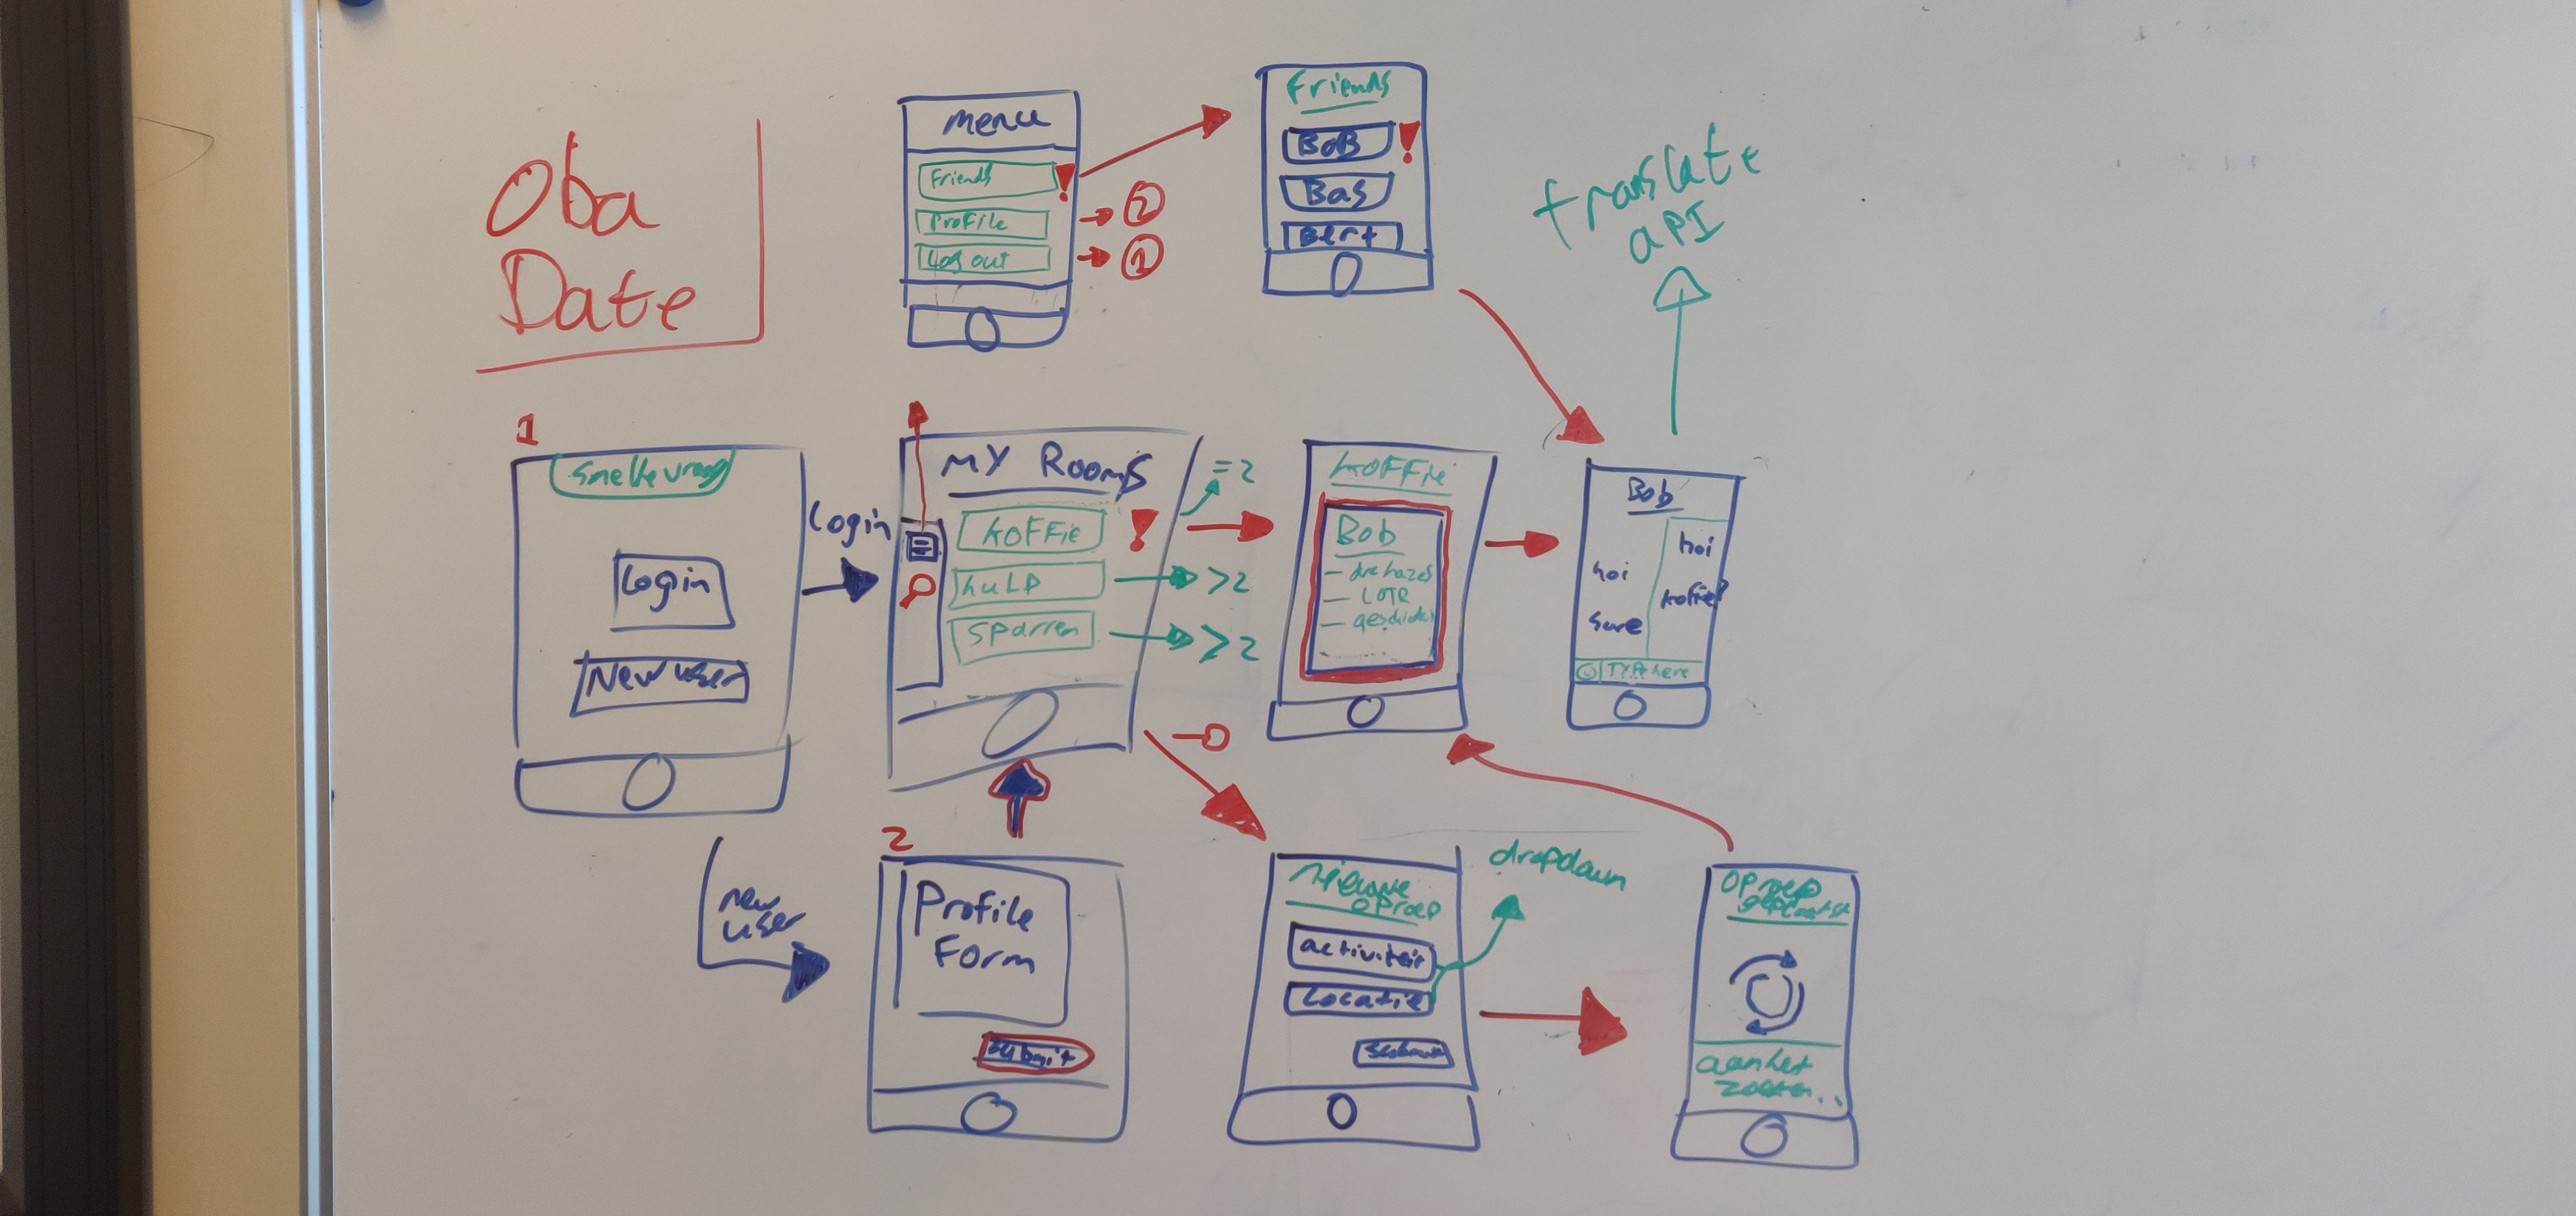 Oba
Date
menu
Friends !
Profile → 2
Log out → 1
Friends
BOB !
Bas
Bert
translate
API
1
Snelle vraag
Login
New user
Login
MY Rooms
KOFFie ! = 2
huLP > 2
Sparren > 2
KOFFie
Bob
- LOTR
Bob
hoi
hoi
koffie?
Sure
new
user
2
Profile
Form
Submit
Nieuwe
oproep
activiteit
Locatie
dropdown
oproep
geplaatst
aan het
zoeken...